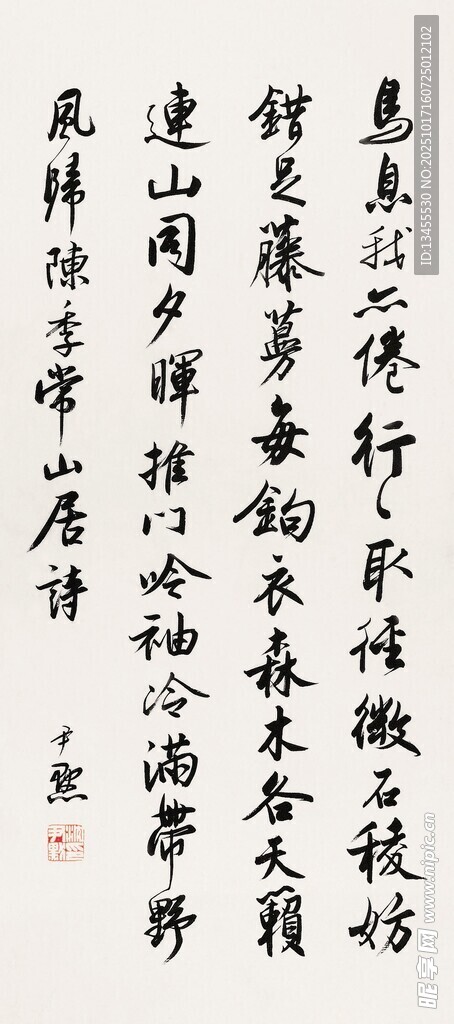 馬息我亦倦行〻取徑微石稜妨
錯足藤蔓每鉤衣森木各天籟
連山同夕暉推門吟袖冷滿帶野
風歸陳季常山居詩
尹默
沈尹默印
ID:13455530 NO:20251017160725012102
昵享网 www.nipic.cn